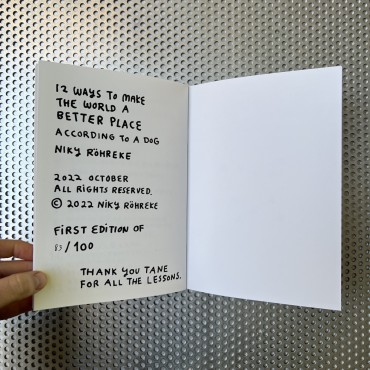 12 WAYS TO MAKE
THE WORLD A
BETTER PLACE
ACCORDING TO A DOG
NIKY RÖHREKE
2022 OCTOBER
ALL RIGHTS RESERVED.
© 2022 NIKY RÖHREKE
FIRST EDITION OF
83/100
THANK YOU TANE
FOR ALL THE LESSONS.